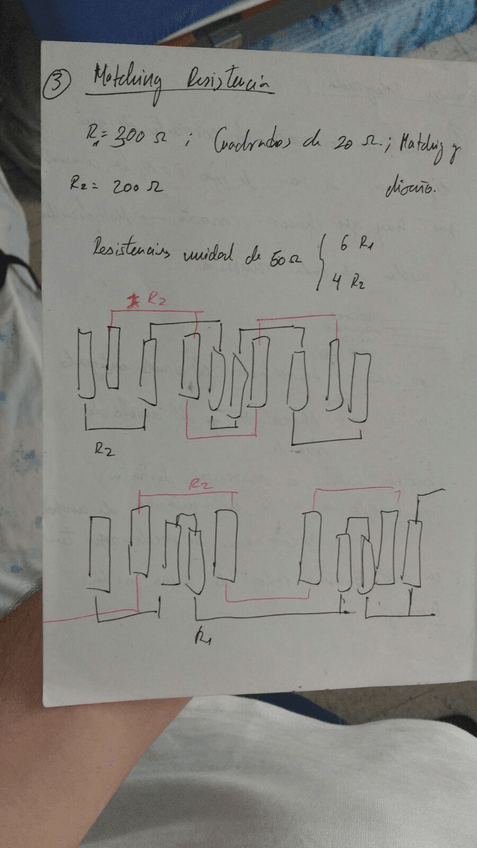 ③ Matching Resistencia
R₁= 300 Ω ; Cuadrados de 20 Ω ; Matching y
R₂ = 200 Ω diseño.
Resistencias unidad de 50 Ω { 6 R₁
4 R₂
R₂
R₂
R₂
R₁